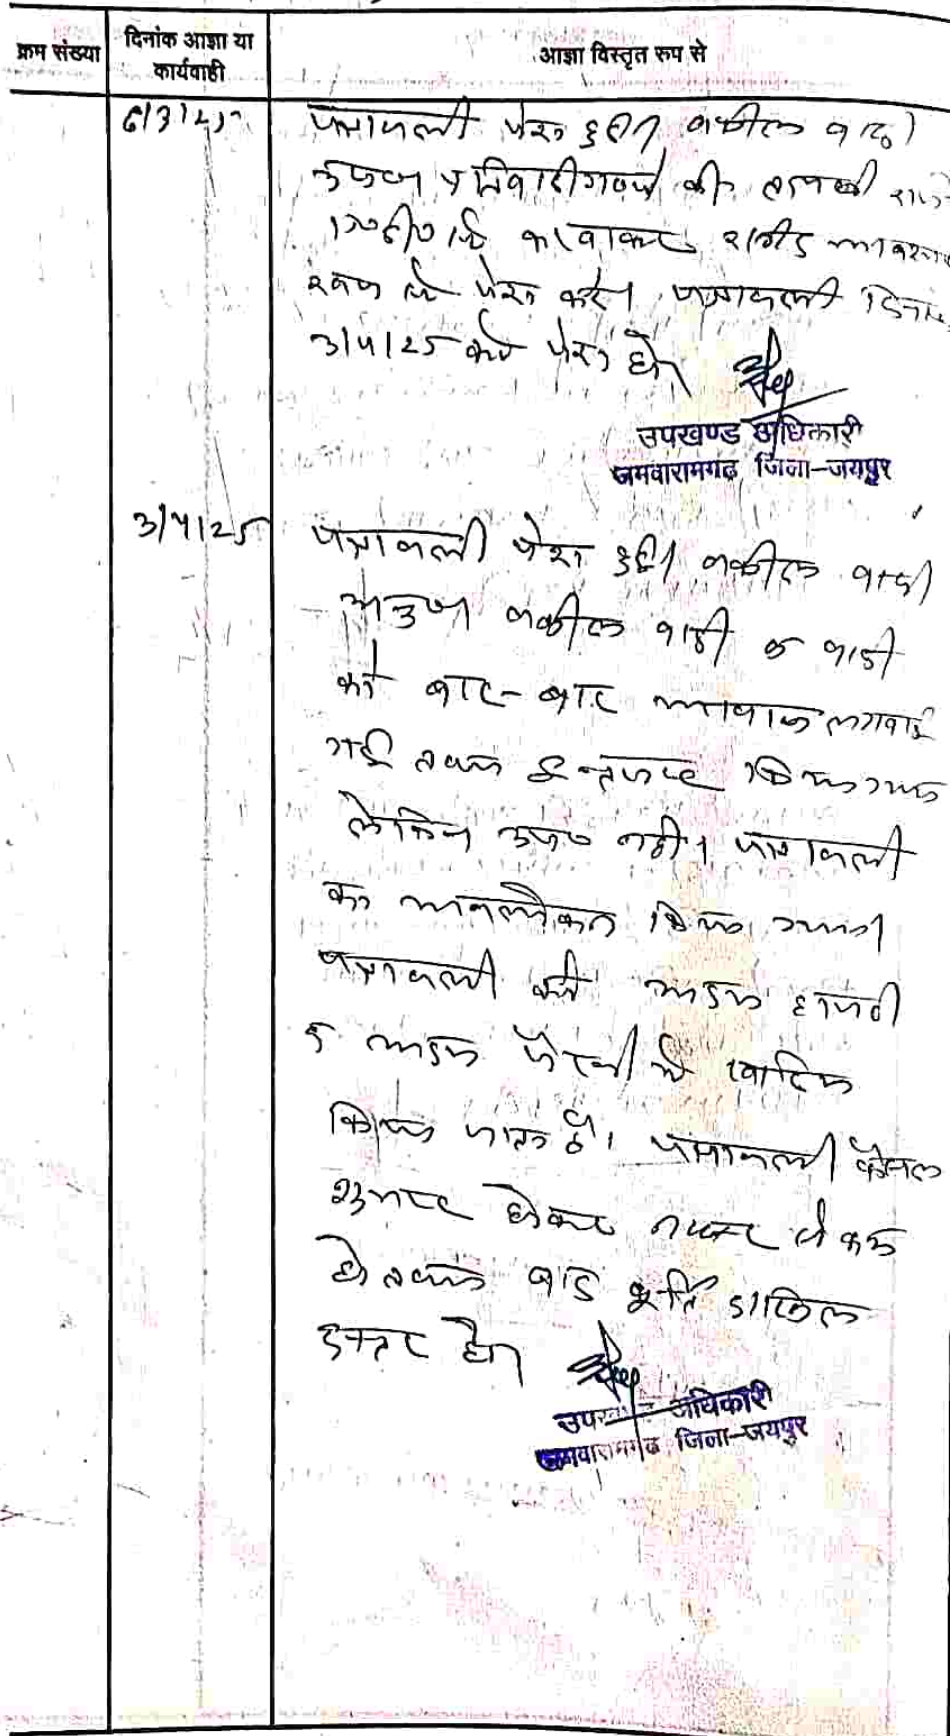 क्रम संख्या
दिनांक आज्ञा या
कार्यवाही
आज्ञा विस्तृत रूप से
6/3/25
पत्रावली पेश हुई। वकील वादी
उप० प्रतिवादीगणों की तलबी
रजि०
पेश करे। पत्रावली दिनांक
3/4/25 को पेश हो।
उपखण्ड अधिकारी
जमवारामगढ़ जिला-जयपुर
3/4/25
पत्रावली पेश हुई। वकील वादी
वकील वादी व वादी
को बार-बार आवाज लगवाई
गई तथा इन्तजार किया गया
लेकिन उप० नहीं। पत्रावली
का अवलोकन किया गया।
पत्रावली को अदम हाजरी
व अदम पैरवी में खारिज
किया जाता है। पत्रावली फैसल
शुमार होकर नम्बर से कम
हो तथा बाद पूर्ति दाखिल
दफ्तर हो।
उपखण्ड अधिकारी
जमवारामगढ़ जिला-जयपुर